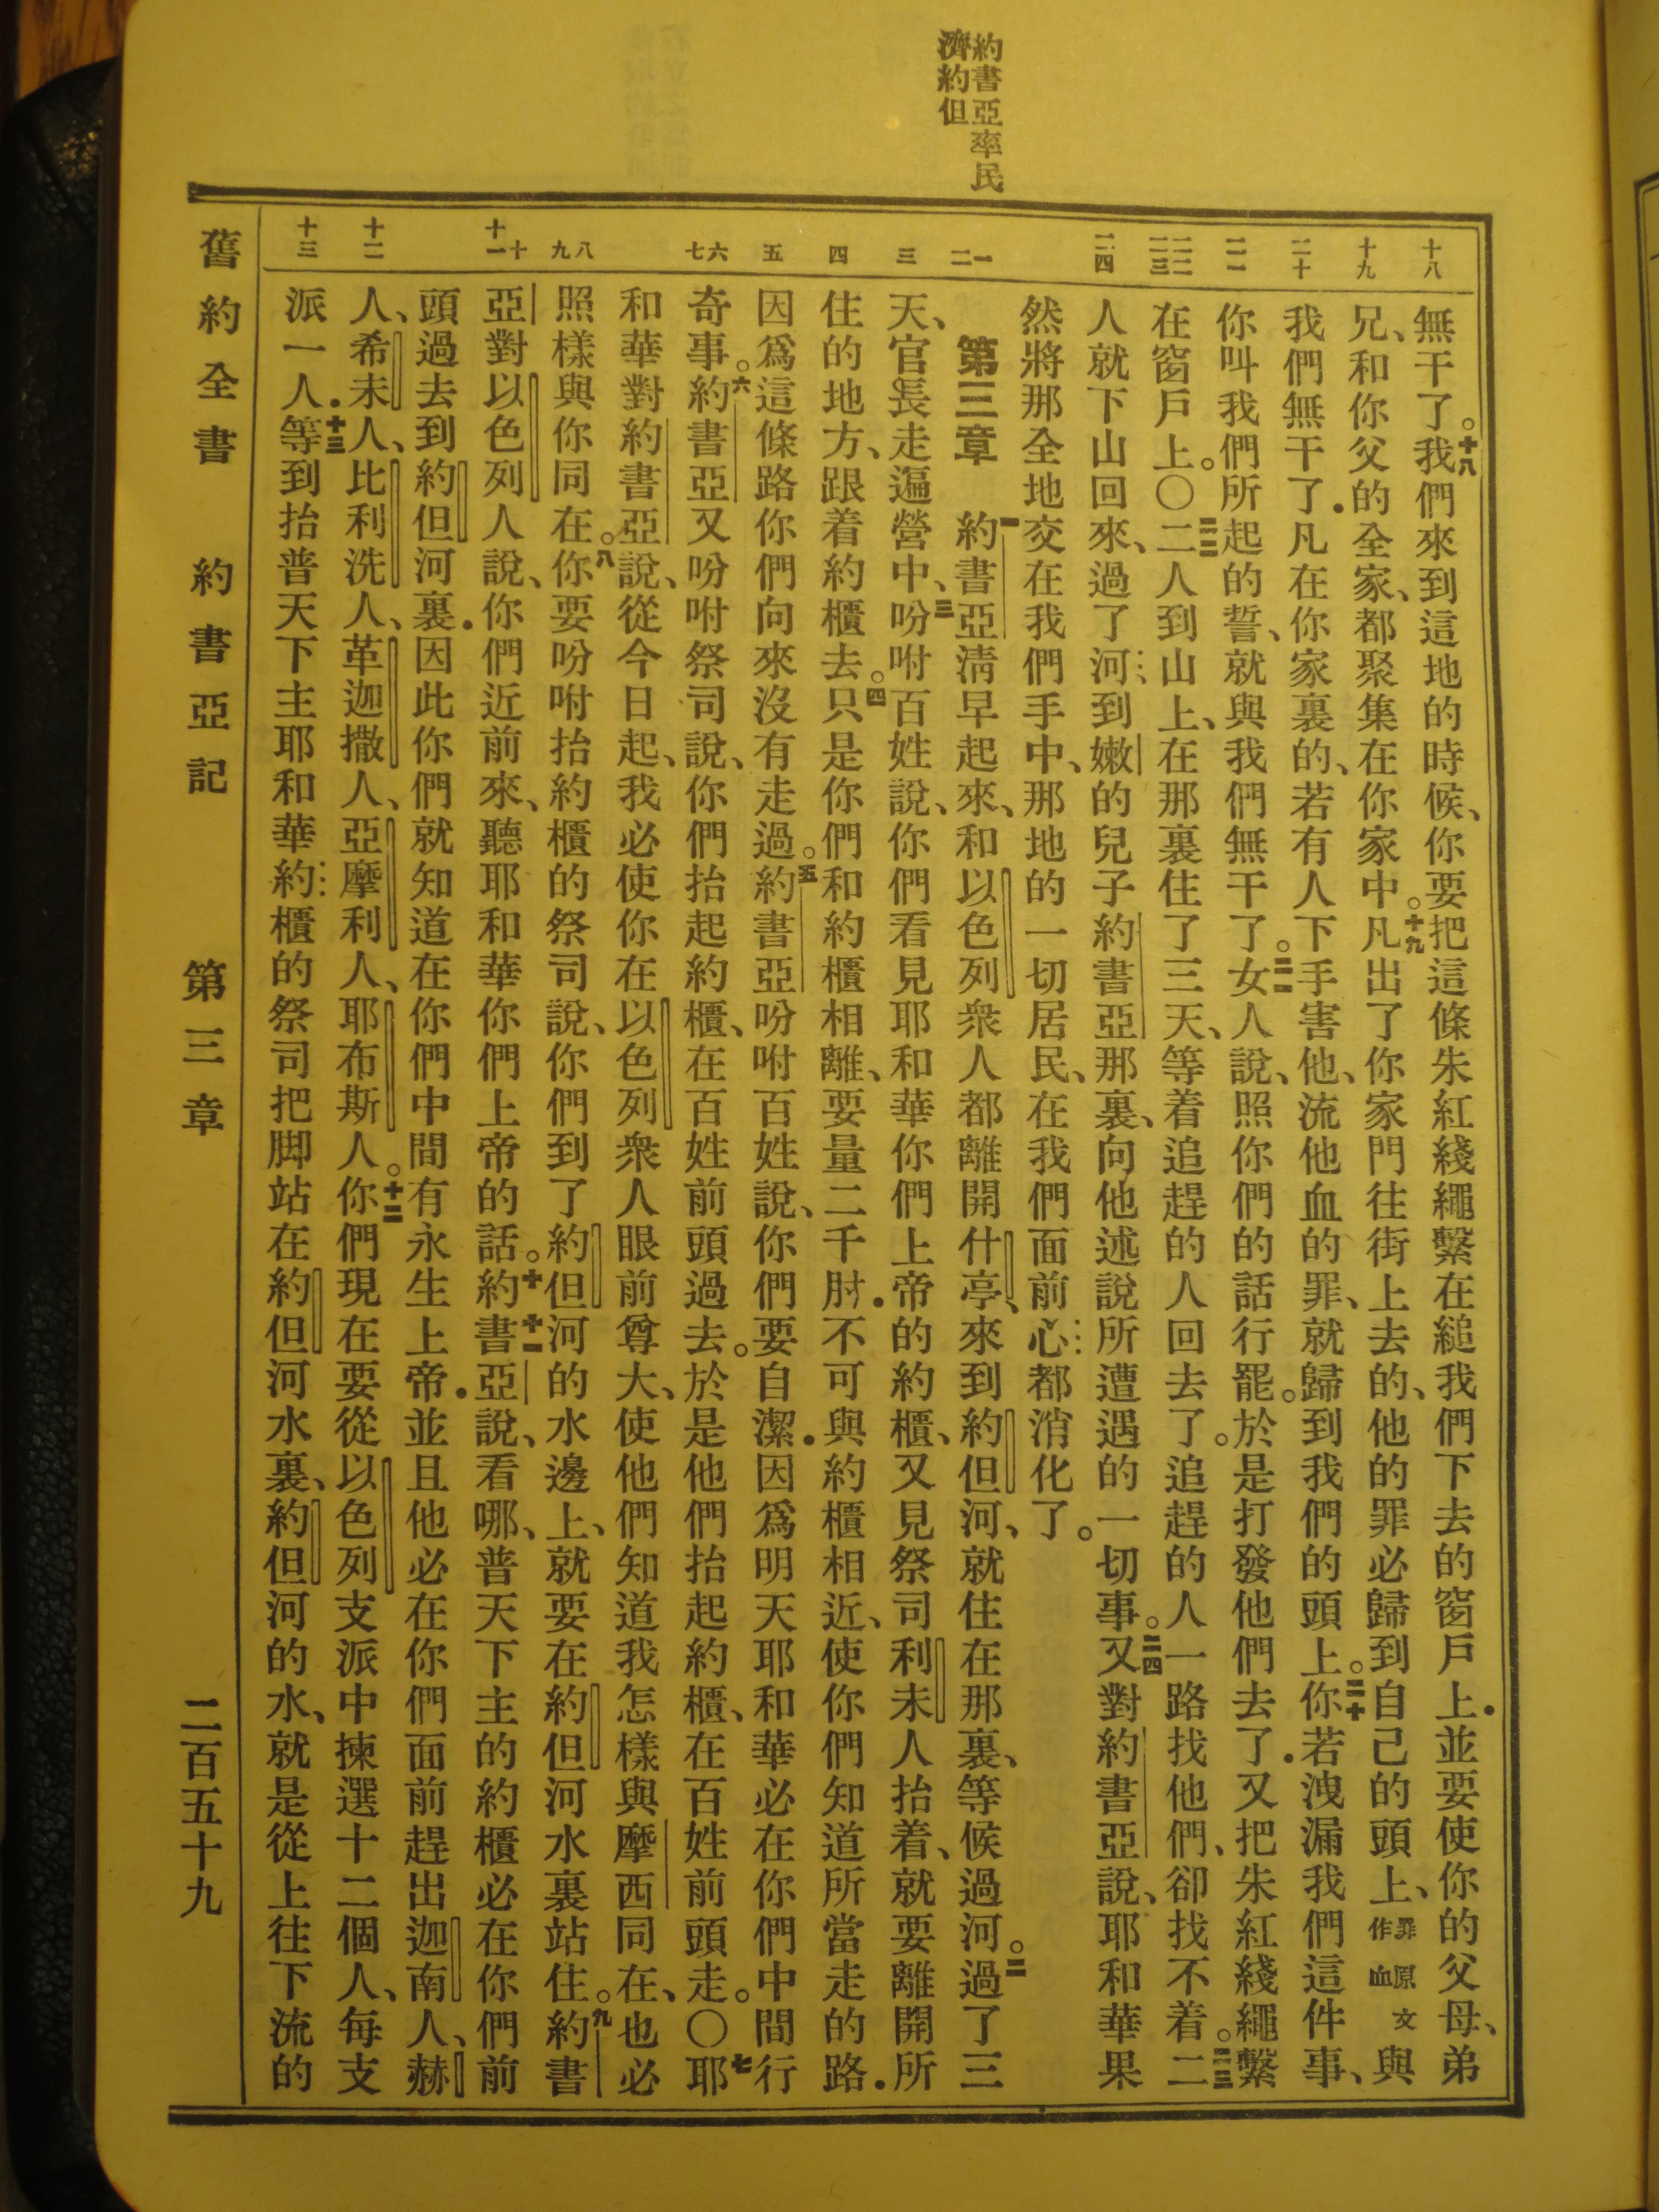 約書亞率民
濟約但
十八
十九
二十
二一
二二
二三
二四
一
二
三
四
五
六
七
八
九
十
十一
十二
十三
無干了。十八我們來到這地的時候、你要把這條朱紅綫繩繫在縋我們下去的窗戶上．並要使你的父母、弟
兄、和你父的全家、都聚集在你家中。十九凡出了你家門往街上去的、他的罪必歸到自己的頭上、罪原文作血與
我們無干了．凡在你家裏的、若有人下手害他、流他血的罪、就歸到我們的頭上。二十你若洩漏我們這件事、
你叫我們所起的誓、就與我們無干了。二一女人說、照你們的話行罷。於是打發他們去了．又把朱紅綫繩繫
在窗戶上。〇二二二人到山上、在那裏住了三天、等着追趕的人回去了。追趕的人一路找他們、卻找不着。二三二
人就下山回來、過了河、到嫩的兒子約書亞那裏、向他述說所遭遇的一切事。二四又對約書亞說、耶和華果
然將那全地交在我們手中、那地的一切居民、在我們面前心都消化了。
第三章 一約書亞清早起來、和以色列衆人都離開什亭、來到約但河、就住在那裏、等候過河。二過了三
天、官長走遍營中、三吩咐百姓說、你們看見耶和華你們上帝的約櫃、又見祭司利未人抬着、就要離開所
住的地方、跟着約櫃去。四只是你們和約櫃相離、要量二千肘．不可與約櫃相近、使你們知道所當走的路．
因爲這條路你們向來沒有走過。五約書亞吩咐百姓說、你們要自潔．因爲明天耶和華必在你們中間行
奇事。六約書亞又吩咐祭司說、你們抬起約櫃、在百姓前頭過去。於是他們抬起約櫃、在百姓前頭走。〇七耶
和華對約書亞說、從今日起、我必使你在以色列衆人眼前尊大、使他們知道我怎樣與摩西同在、也必
照樣與你同在。八你要吩咐抬約櫃的祭司說、你們到了約但河的水邊上、就要在約但河水裏站住。九約書
亞對以色列人說、你們近前來、聽耶和華你們上帝的話。十十一約書亞說、看哪、普天下主的約櫃必在你們前
頭過去到約但河裏．因此你們就知道在你們中間有永生上帝．並且他必在你們面前趕出迦南人、赫
人、希未人、比利洗人、革迦撒人、亞摩利人、耶布斯人。十二你們現在要從以色列支派中揀選十二個人、每支
派一人．十三等到抬普天下主耶和華約櫃的祭司把脚站在約但河水裏、約但河的水、就是從上往下流的
舊約全書 約書亞記 第三章 二百五十九